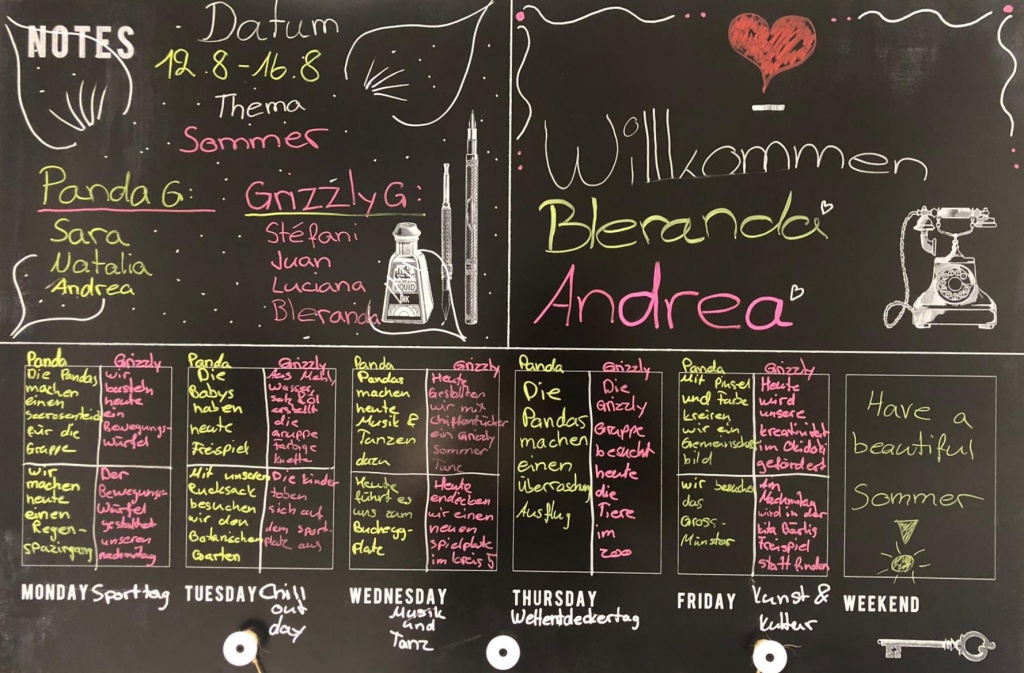 NOTES
Datum
12.8-16.8
Thema
Sommer
Panda G:
Sara
Natalia
Andrea
Grizzly G:
Stéfani
Juan
Luciana
Bleranda
LIQUID
INK
Willkommen
Bleranda
Andrea
Panda
Die Pandas
machen
einen
für die
Gruppe
wir
machen
heute
einen
Regen-
spaziergang
Grizzly
wir
basteln
heute
ein
Bewegungs-
würfel
Der
Bewegungs-
würfel
gestaltet
unseren
nachmitag
MONDAY Sporttag
Panda
Die
Babys
haben
heute
Freispiel
Mit unseren
Rucksack
besuchen
wir den
Botanischen
Garten
Grizzly
Aus Mehl,
Wasser,
Salz & Öl
erstellt
die
gruppe
farbige
knette
Die kinder
toben
sich auf
dem sport-
platz aus
TUESDAY Chill
out
day
Panda
Pandas
machen
heute
Musik &
Tanzen
dazu
Heute
führt es
uns zum
Buchegg-
platz
Grizzly
Heute
gestalten
wir mit
chiffontücher
ein Grizzly
Sommer
Tanz
Heute
endecken
wir einen
neuen
spielplatz
im kreis 5
WEDNESDAY
Musik
und
Tanz
Panda
Die
Pandas
machen
einen
Überraschung
Ausflug
Grizzly
Die
Grizzly
Gruppe
besucht
heute
die
Tiere
im
zoo
THURSDAY
Weltentdeckertag
Panda
Mit Pinsel
und Farbe
kreiren
wir ein
Gemeinschaft
bild
wir besuchen
das
Gross-
Münster
Grizzly
Heute
wird
unsere
kreativität
im
gefördert
Am
Nachmitag
wird in der
kita
Freispiel
statt finden
FRIDAY Kunst &
Kultur
Have a
beautiful
Sommer
WEEKEND